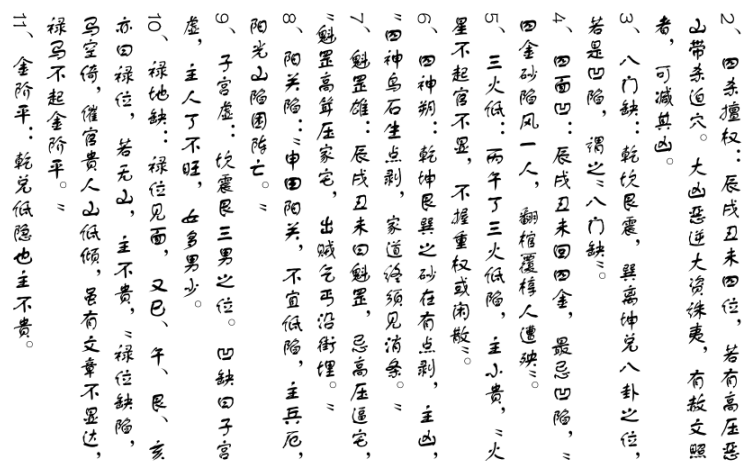 2、四杀擅权：辰戌丑未四位，若有高压恶
山带杀迫穴。大凶恶逆大资诛夷，有赦文照
者，可减其凶。
3、八门缺：乾坎艮震，巽离坤兑八卦之位，
若是凹陷，谓之"八门缺"。
4、四面凹：辰戌丑未回四金，最忌凹陷，"
四金砂陷风一人，翻棺覆椁人遭殃"。
5、三火低：丙午丁三火低陷，主小贵，"火
星不起官不显，不握重权或闲散"。
6、四神朔：乾坤艮巽之砂在有点剥，主凶，
"四神鸟石生点剥，家道终须见消条。"
7、魁罡雄：辰戌丑未曰魁罡，忌高压逼宅，
"魁罡高耸压家宅，出贼乞丐沿街埋。"
8、阳关陷："申曰阳关，不宜低陷，主兵厄，
阳光山陷困阵亡。"
9、子宫虚：坎震艮三男之位。凹缺曰子宫
虚，主人丁不旺，女多男少。
10、禄地缺：禄位见面，又巳、午、艮、亥
亦曰禄位，若无山，主不贵，"禄位缺陷，
马空倚，催官贵人山低倾，虽有文章不显达，
禄马不起金阶平。"
11、金阶平：乾兑低隐也主不贵。